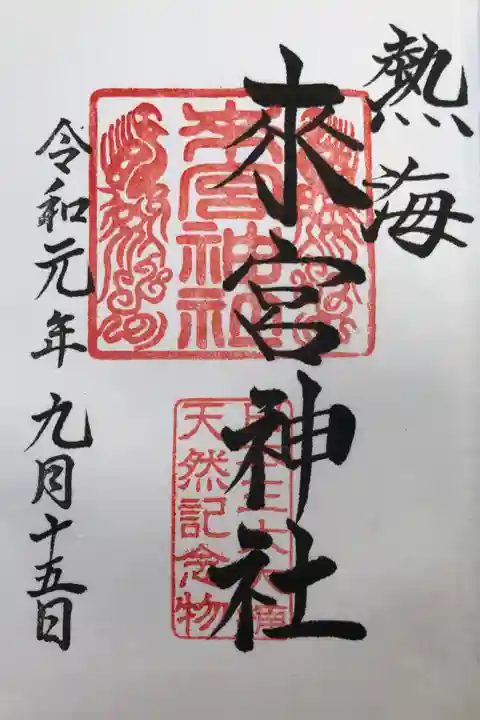 熱海
來宮神社
來宮神社
天然記念物
令和元年九月十五日